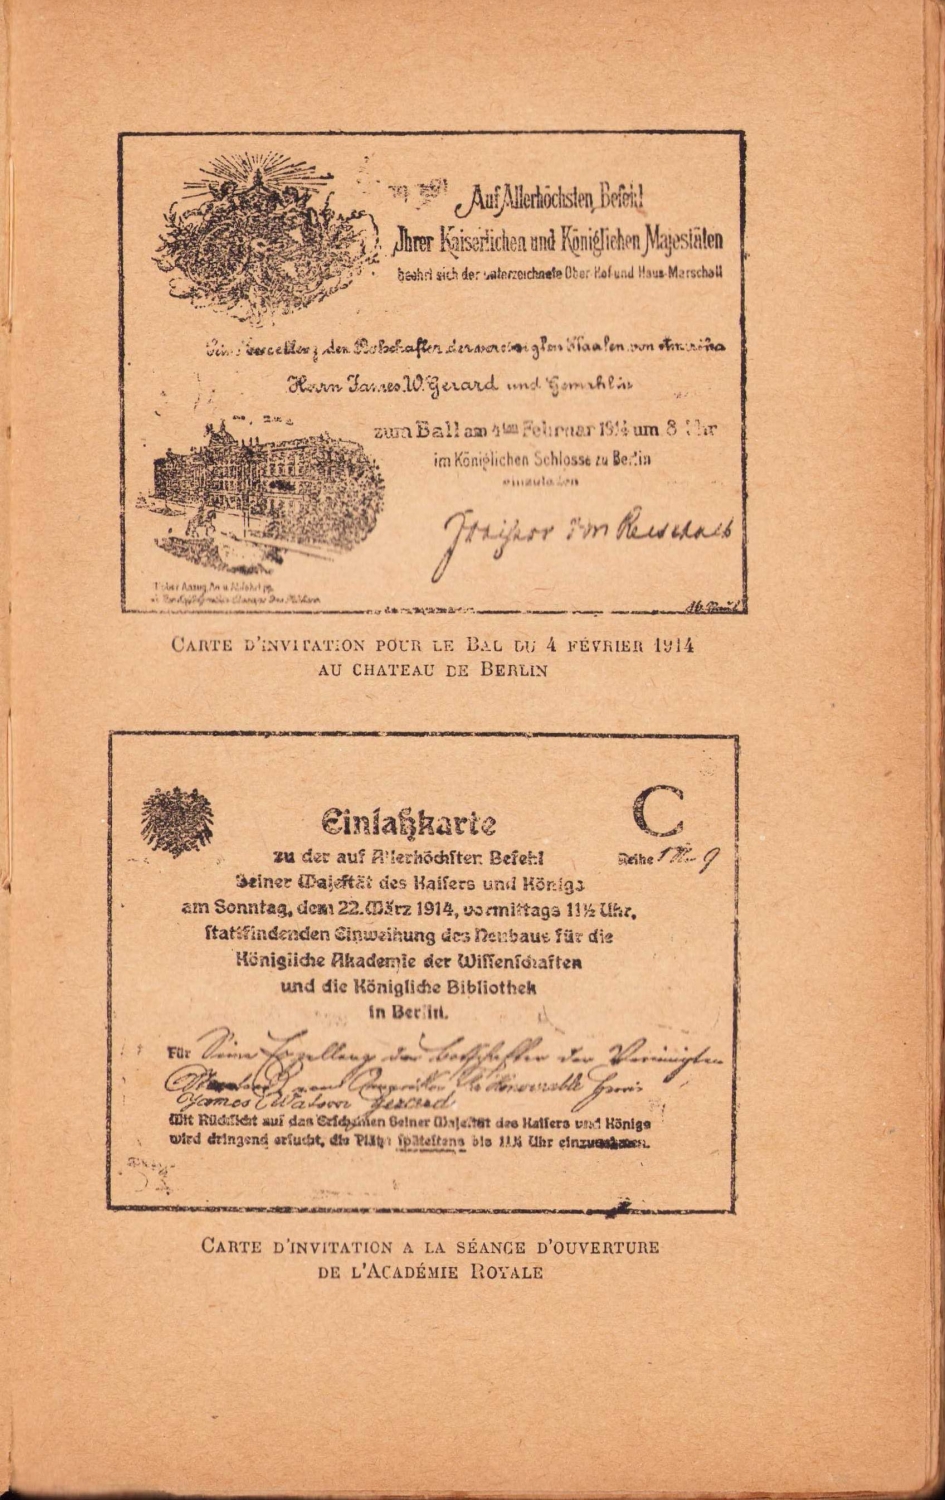 Auf Allerhöchsten Befehl
Ihrer Kaiserlichen und Königlichen Majestäten
beehrt sich der unterzeichnete Ober-Hof und Haus-Marschall
den Botschafter der vereinigten Staaten von Amerika
Herrn James W. Gerard und Gemahlin
zum Ball am 4ten Februar 1914 um 8 Uhr
im Königlichen Schlosse zu Berlin
einzuladen
CARTE D'INVITATION POUR LE BAL DU 4 FÉVRIER 1914
AU CHATEAU DE BERLIN
C
Einlaßkarte
Reihe
zu der auf Allerhöchsten Befehl
Seiner Majestät des Kaisers und Königs
am Sonntag, dem 22. März 1914, vormittags 11½ Uhr,
stattfindenden Einweihung des Neubaus für die
Königliche Akademie der Wissenschaften
und die Königliche Bibliothek
in Berlin.
Für Seine Exzellenz der Botschafter der Vereinigten
Staaten von Amerika The Honourable Herrn
James Watson Gerard
Mit Rücksicht auf das Erscheinen Seiner Majestät des Kaisers und Königs
wird dringend ersucht, die Plätze spätestens bis 11¼ Uhr einzunehmen.
CARTE D'INVITATION A LA SÉANCE D'OUVERTURE
DE L'ACADÉMIE ROYALE